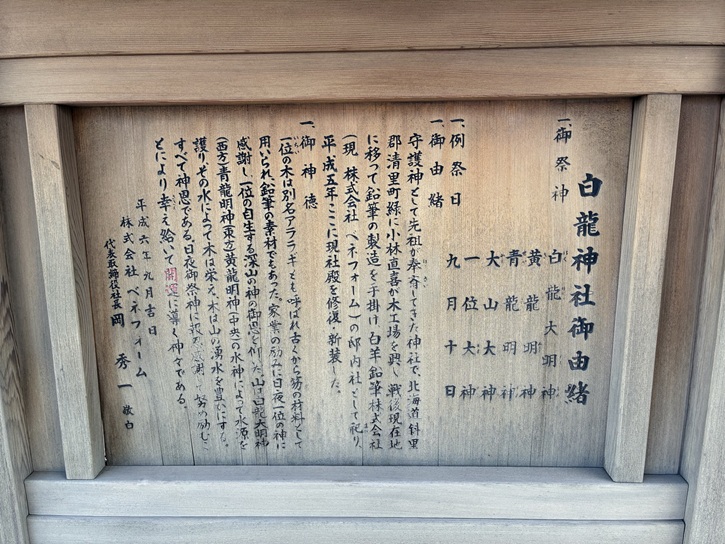 白龍神社御由緒
一、御祭神
白龍大明神
黄龍明神
青龍明神
大山大神
一位大神
一、例祭日 九月十日
一、御由緒
守護神として先祖が奉斎してきた神社で、北海道斜里
郡清里町緑に小林直喜が木工場を興し、戦後現在地
に移って鉛筆の製造を手掛け、白羊鉛筆株式会社
(現 株式会社 ベネフォーム)の邸内社として祀り、
平成五年ここに現社殿を修復・新装した。
一、御神徳
一位の木は別名アララギとも呼ばれ古くから笏の材料として
用いられ鉛筆の素材でもあった。家業の励みに日夜一位の神に
感謝し、一位の自生する深山の神の御恩を仰いだ。山は白龍大明神
(西方)青龍明神(東方)黄龍明神(中央)の水神によって水源を
護りその水によって木は栄え、木は山の湧水を豊かにする。
すべて神恩である。日夜御祭神に感謝して努め励むこ
とにより幸え給いて開運に導く神々である。
平成六年九月吉日
株式会社 ベネフォーム
代表取締役社長 岡 秀一 敬白